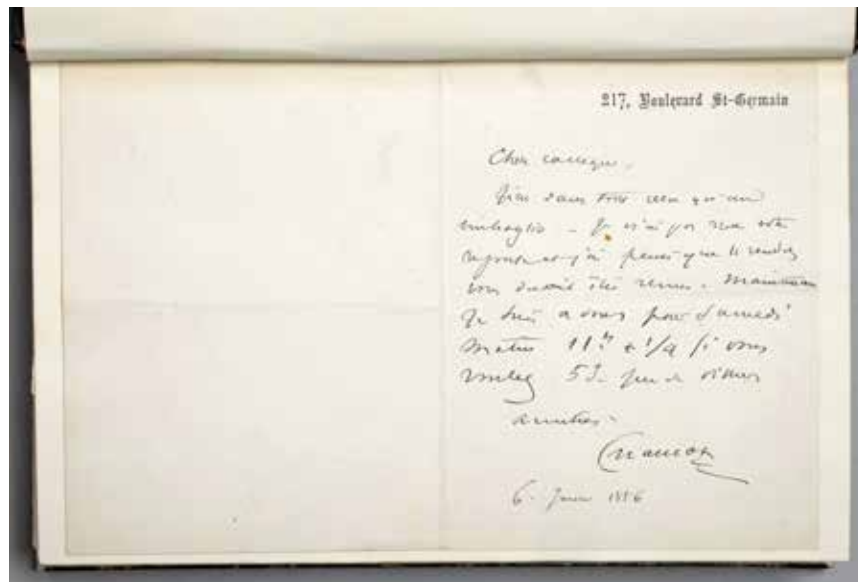 217, Boulevard St-Germain
Cher collègue,
dans tout cela qu'un
imbroglio - Je n'ai pas reçu votre
réponse et j'ai pensé que le rendez
vous devait être remis. Maintenant
Je suis à vous pour Samedi
matin 11h 1/4 si vous
voulez
amitiés.
Charcot
6 1886